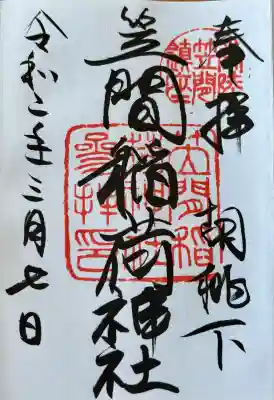 奉拝
胡桃下
笠間稲荷神社
令和二年三月七日
笠間稲
荷神社
参拝印